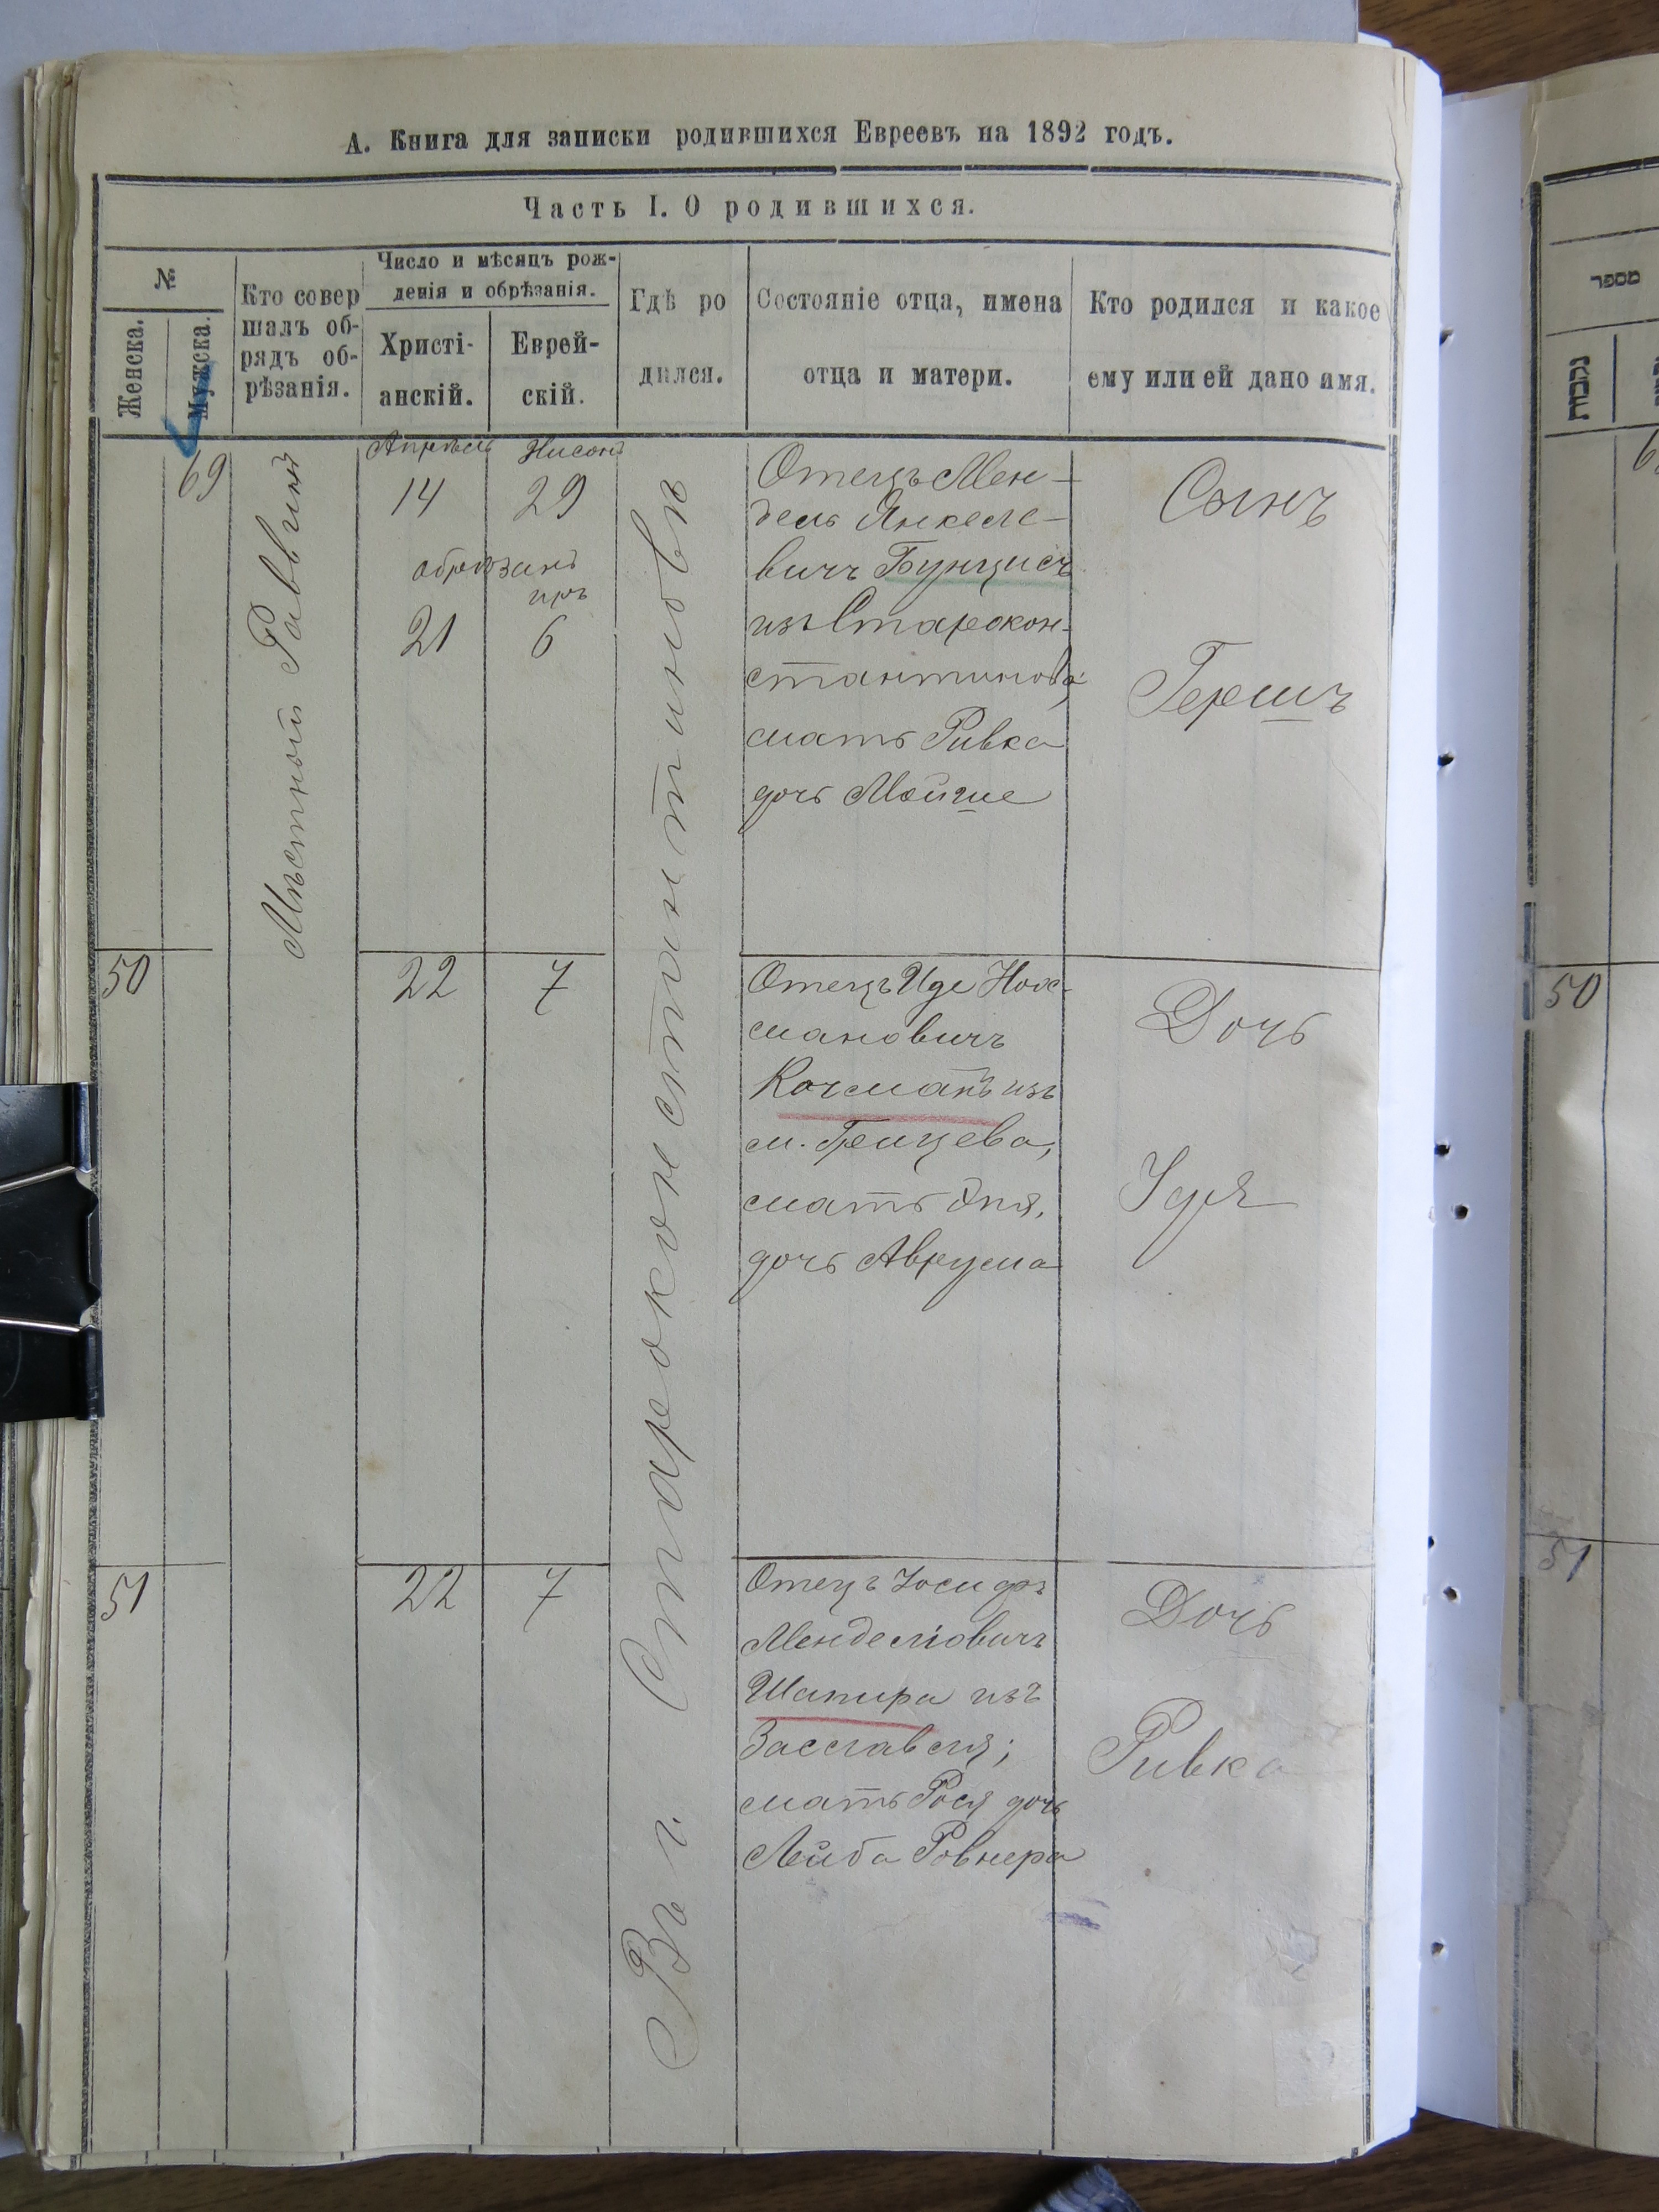 А. Книга для записки родившихся Евреевъ на 1892 годъ.
Часть I. О родившихся.
№
Женска.
Мужска.
Кто совер
шалъ об-
рядъ об-
рѣзанія.
Число и мѣсяцъ рож-
денія и обрѣзанія.
Христі-
анскій.
Еврей-
скій.
Гдѣ ро
дился.
Состояніе отца, имена
отца и матери.
Кто родился и какое
ему или ей дано имя.
69
Мѣстный Раввинъ
Апрѣль
Нисонъ
14
29
обрѣзанъ
иръ
21
6
Въ г. Староконстантиновѣ
Отецъ Мен-
дель Янкеле-
вичъ Бунцисъ
изъ Старокон-
стантинова,
мать Ривка
дочь Мойше
Сынъ
Гершъ
50
22
7
Отецъ Иде
мановичъ
Кочманъ изъ
м. Грицева,
мать Эня,
дочь Аврума
Дочь
51
22
7
Отецъ Іосифъ
Менделіовичъ
Шапира изъ
Заславля;
мать Рося дочь
Лейба Ровнера
Дочь
Ривка
מספר
נקבות
50
51